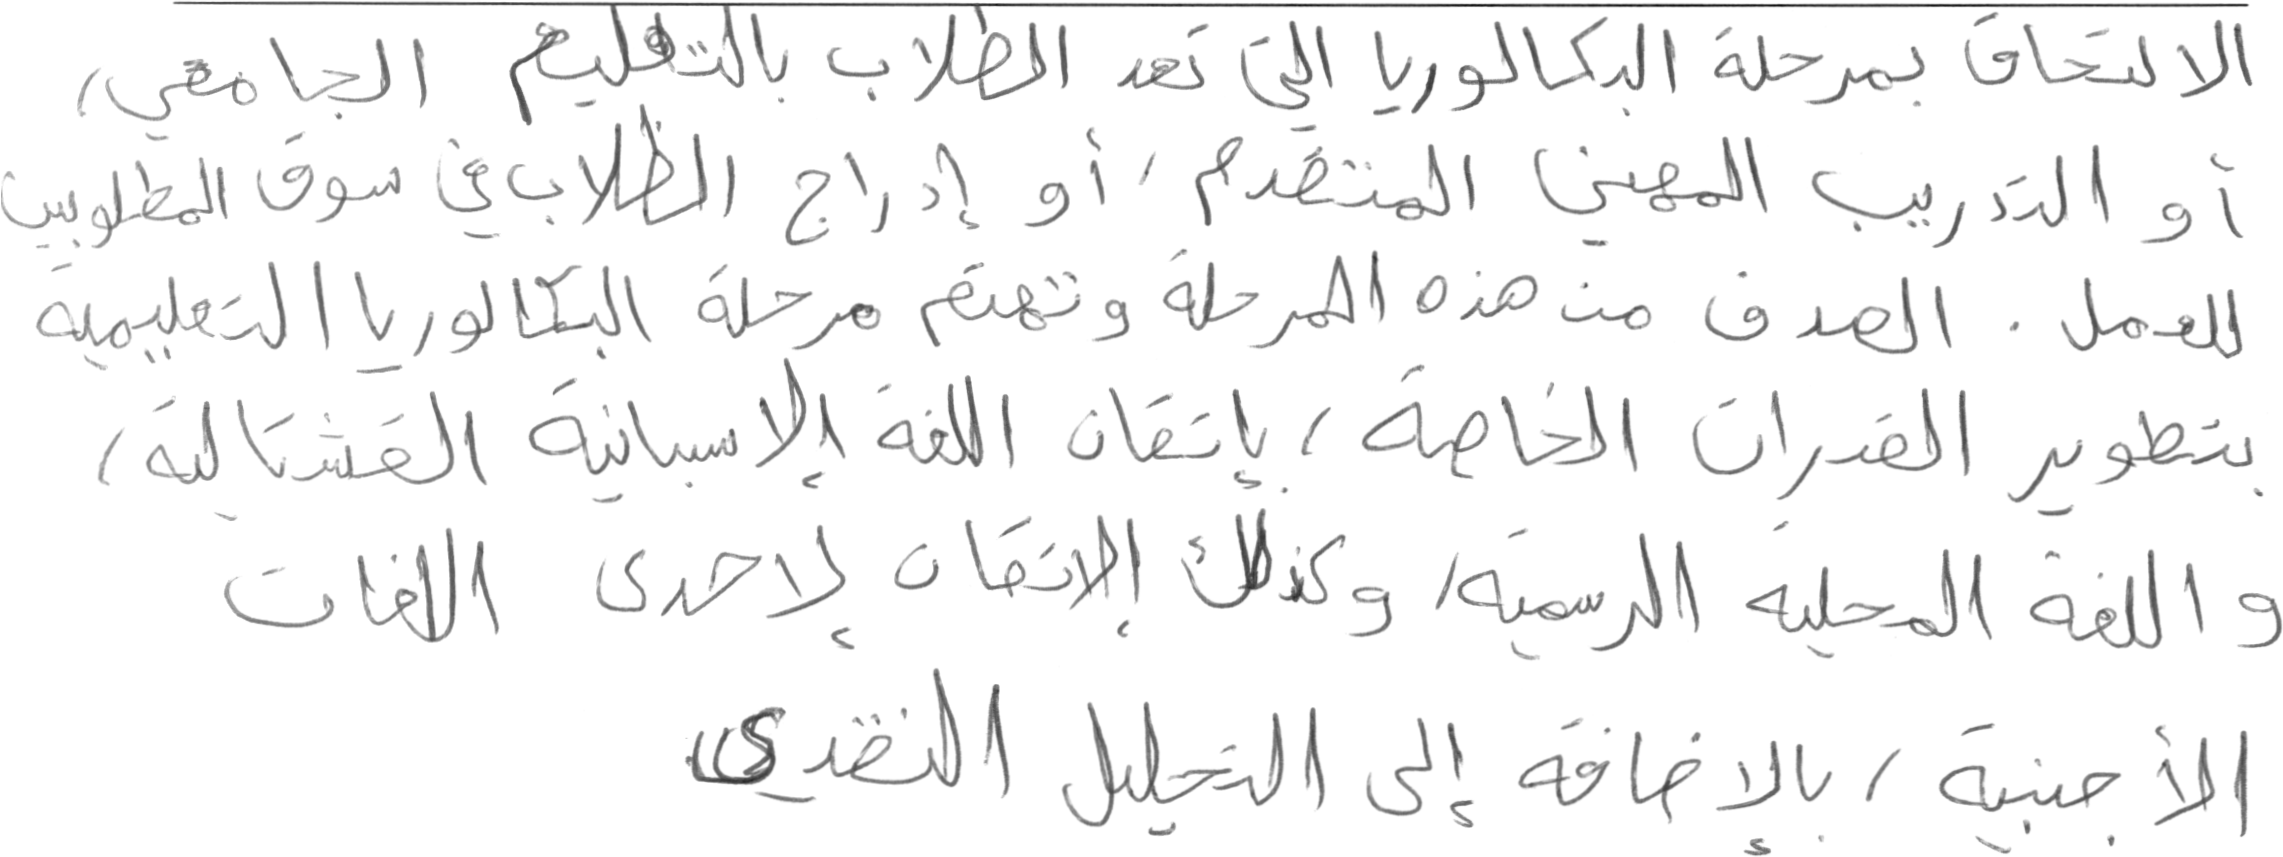 الالتحاق بمرحلة البكالوريا التي تعد الطلاب بالتعليم الجامعي،
أو التدريب المهني المتقدم، أو إدراج الطلاب في سوق المطلوبين
للعمل. الهدف من هذه المرحلة وتهتم مرحلة البكالوريا التعليمية
بتطوير القدرات الخاصة، بإتقان اللغة الإسبانية القشتالية،
واللغة المحلية الرسمية، وكذلك الإتقان لإحدى اللغات
الأجنبية، بالإضافة إلى التحليل النقدي